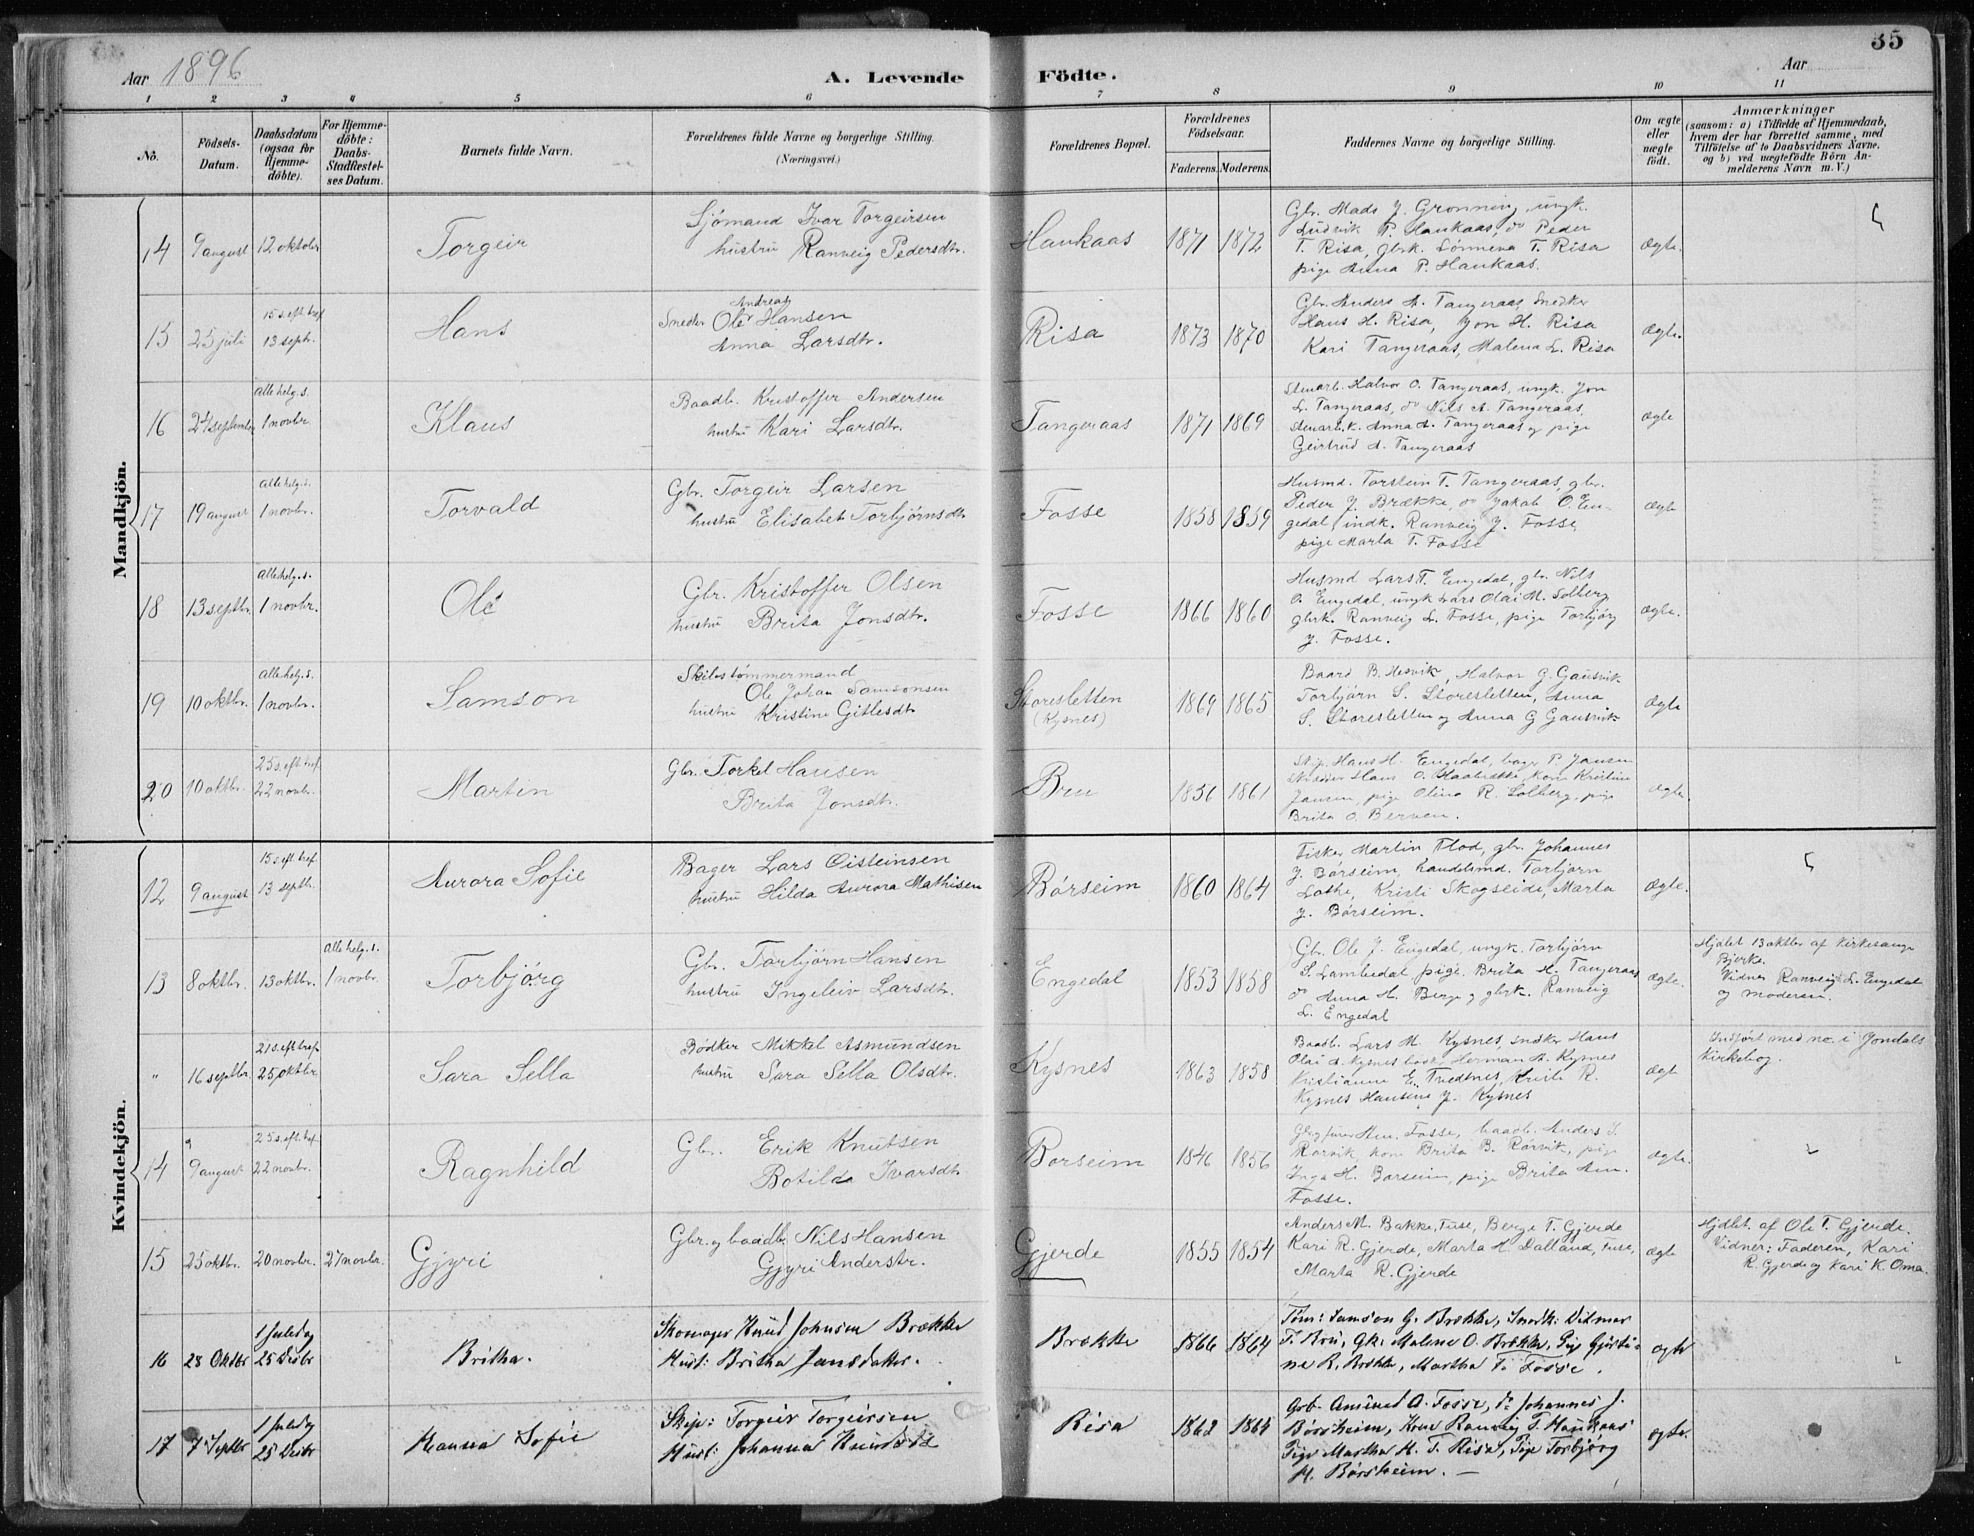 35
Aar 1896
A. Levende Födte.
Aar
1 2 3 4 5 6 7 8 9 10 11
No.
Födsels-Datum.
Daabsdatum (ogsaa for Hjemme-döbte).
For Hjemme-döbte: Daabs-Stadfæstel-ses Datum.
Barnets fulde Navn.
Forældrenes fulde Navne og borgerlige Stilling.
(Næringsvei.)
Forældrenes Bopæl.
Forældrenes Födselsaar.
Faderens. Moderens.
Faddernes Navne og borgerlige Stilling.
Om ægte eller uægte födt.
Anmærkninger
(saasom: a) i Tilfælde af Hjemmedaab,
hvem der har forrettet samme, med
Tilföielse af to Daabsvidners Navne.
og b) ved uægtefödte Börn An-
melderens Navn m. V.)
Mandkjön.
14 9 august 12 oktober Torgeir
Sjømand Ivar Torgeirsen
hustru Ranveig Pedersdtr.
Haukaas 1871 1872
Gbr. Mads J. Grønning, ungk.
Ludvik P. Haukaas, do Peder
T. Risa, gbrk. Lønneva T. Risa
pige Anna P. Haukaas.
ægte.
15 25 juli 15 s. eft. tref. 13 septr. Hans
Andreas
Snedker Ole Hansen
Anna Larsdtr.
Risa 1873 1870
Gbr. Anders A. Tangeraas, Snedker
Hans H. Risa, Jon H. Risa
Kari Tangeraas, Malena L. Risa
Ægte.
16 24 september Alle helg. s. 1 novbr Klaus
Baadb. Kristoffer Andersen
hustru Kari Larsdtr.
Tangeraas 1871 1869
Stenarb. Halvor O. Tangeraas, ungk. Jon
L. Tangeraas, do Nils A. Tangeraas,
Stenarb.k. Anna A. Tangeraas og pige
Geirtrud A. Tangeraas
ægte
17 19 august Alle helg. s. 1 novbr. Torvald
Gbr. Torgeir Larsen
hustru Elisabet Torbjørnsdtr
Fosse 1858 1859
Husmd. Torstein T. Tangeraas, gbr.
Peder J. Brække, do Jakob O. En-
gedal, indk. Ranveig J. Fosse,
pige Marta T. Fosse
ægte
18 13 septbr. Alle helg. s. 1 novbr. Ole
Gbr. Kristoffer Olsen
hustru Brita Jonsdtr.
Fosse 1866 1860
Husmd Lars T. Engedal, gbr. Nils
O. Engedal, ungk Lars Olai M. Solberg
gbrk. Ranveig L. Fosse, pige Torbjørg
J. Fosse.
ægte.
19 10 oktbr. Alle helg. s. 1 novbr. Samson
Skibstømmermand
Ole Johan Samsonsen
hustru Kristine Gitlesdtr
Storesletten
(Kysnes)
1869 1865
Baard B. Nesvik, Halvor G. Gausvik
Torbjørn S. Storesletten, Anna
S. Storesletten og Anna G Gausvik
Ægte
20 10 oktbr. 25 s. eft. tref. 22 novbr. Martin
Gbr. Torkel Hansen
Brita Jonsdtr.
Bru 1856 1861
Skip. Hans H. Engedal, bager P. Jansen
Hans O. kone Kristine
Jansen, pige Olina R. Solberg, pige
Brita O. Berven.
ægte.
Kvindekjön.
12 9 august 15 s. eft. tref. 13 septbr. Aurora Sofie
Bager Lars Oisteinsen
hustru Hilda Aurora Mathisen
Børseim 1860 1864
Fisker Martin Flod, gbr. Johannes
J. Børseim, handelsmd. Torbjørn
Lothe, Kristi Skogseide, Marta
J. Børseim.
ægte.
13 8 oktbr. 13 oktbr. Alle helg. s. 1 novbr. Torbjørg
Gbr. Torbjørn Hansen
hustru Ingeleiv Larsdtr.
Engedal 1853 1858
Gbr. Ole J. Engedal, ungk. Torbjørn
S. Lambedal, pige Brita H. Tangeraas
do Anna H. Berge og gbrk. Ranveig
L. Engedal
ægte.
Hjdøbt 13 oktbr af kirkesanger
Bjerke.
Vidner Ranveig L. Engedal
og moderen.
" 16 septbr. 21 s. eft tref. 25 oktbr Sara Sella
Bødker Mikkel Asmundsen
hustru Sara Sella Olsdtr.
Kysnes 1863 1858
Baadb. Lars M. Kysnes, sndkr Hans
Olai A. Kysnes, Herman A. Kysnes
Kristianne E. Tvedtnes, Kristi R.
Kysnes Hansine J. Kysnes
ægte
Indført med no. i Jondals
Kirkebog.
14 9 august 25 s. eft. tref. 22 novbr. Ragnhild
Gbr. Erik Knutsen
Botilda Ivarsdtr
Børseim 1846 1856
Am. Fosse, baadb. Anders S.
Rørvik kone Brita B. Rørvik, pige
Inga H. Børseim, pige Brita Am.
Fosse.
ægte.
15 25 oktbr. 20 novbr. 27 novbr. Gjyri
Gbr. og baadb. Nils Hansen
Gjyri Anderstr.
Gjerde 1855 1854
Anders M. Bakke, Fuse, Berge T. Gjerde
Kari R. Gjerde, Marta H. Dalland, Fuse,
Marta R. Gjerde
ægte
Hjdbt. af Ole T. Gjerde.
Vidner: Faderen, Kari
R. Gjerde og Kari K. Oma.
16 28 Oktbr 1 Juledag 25 Decbr Britha.
Skomager Knud Johnsen Brække
Hust: Britha Jansdatter.
Brække 1866 1864
Tøm: Samson G. Brække, Snedk: Ditmar
T. Bru, Gk. Malene O. Brække, Pige Gjerthi-
ne R. Brække, Martha T. Fosse.
ægte
17 7 Septbr 1 Juledag 25 Decbr Hanna Sofie
Skip: Torgeir Torgeirsen
Hust: Johanna Knudsdtr
Risa 1862 1865
Gbr. Amund A. Fosse, do Johannes J.
Børsheim, Kone Ranveig T. Haukaas
Pige Martha H. T. Risa, Pige Torbjørg
H. Børsheim. —
ægte.